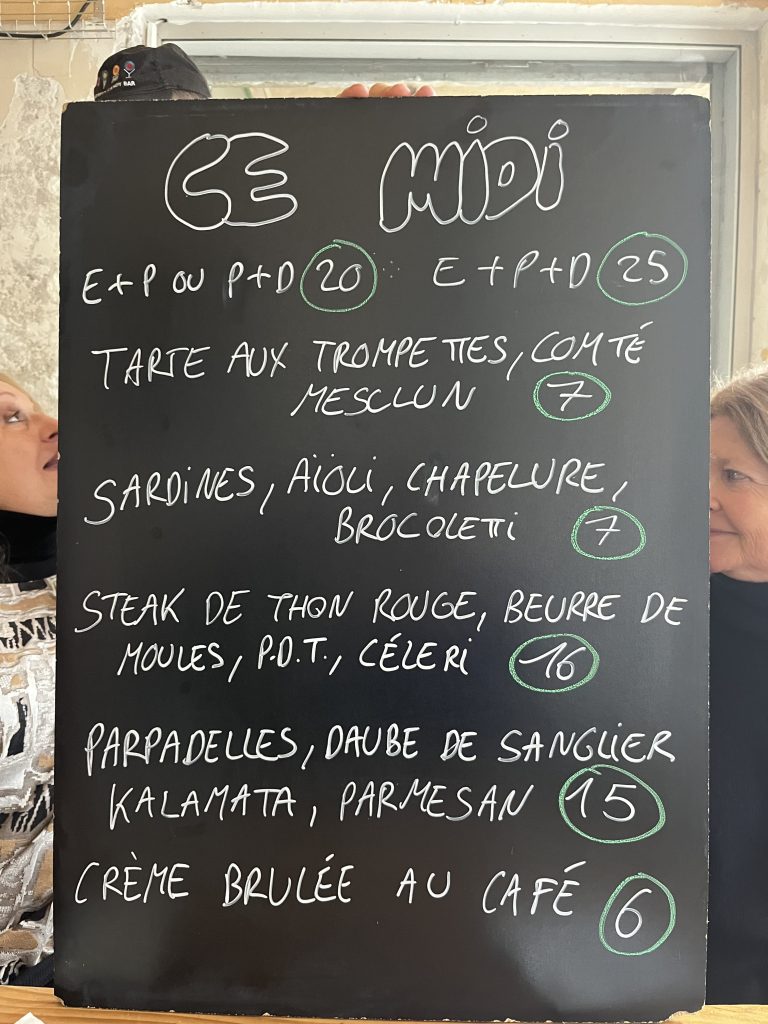 CE MIDI
E+P OU P+D 20 E+P+D 25
TARTE AUX TROMPETTES, COMTÉ
MESCLUN 7
SARDINES, AÏOLI, CHAPELURE,
BROCOLETTI 7
STEAK DE THON ROUGE, BEURRE DE
MOULES, P.D.T., CÉLERI 16
PARPADELLES, DAUBE DE SANGLIER
KALAMATA, PARMESAN 15
CRÈME BRULÉE AU CAFÉ 6